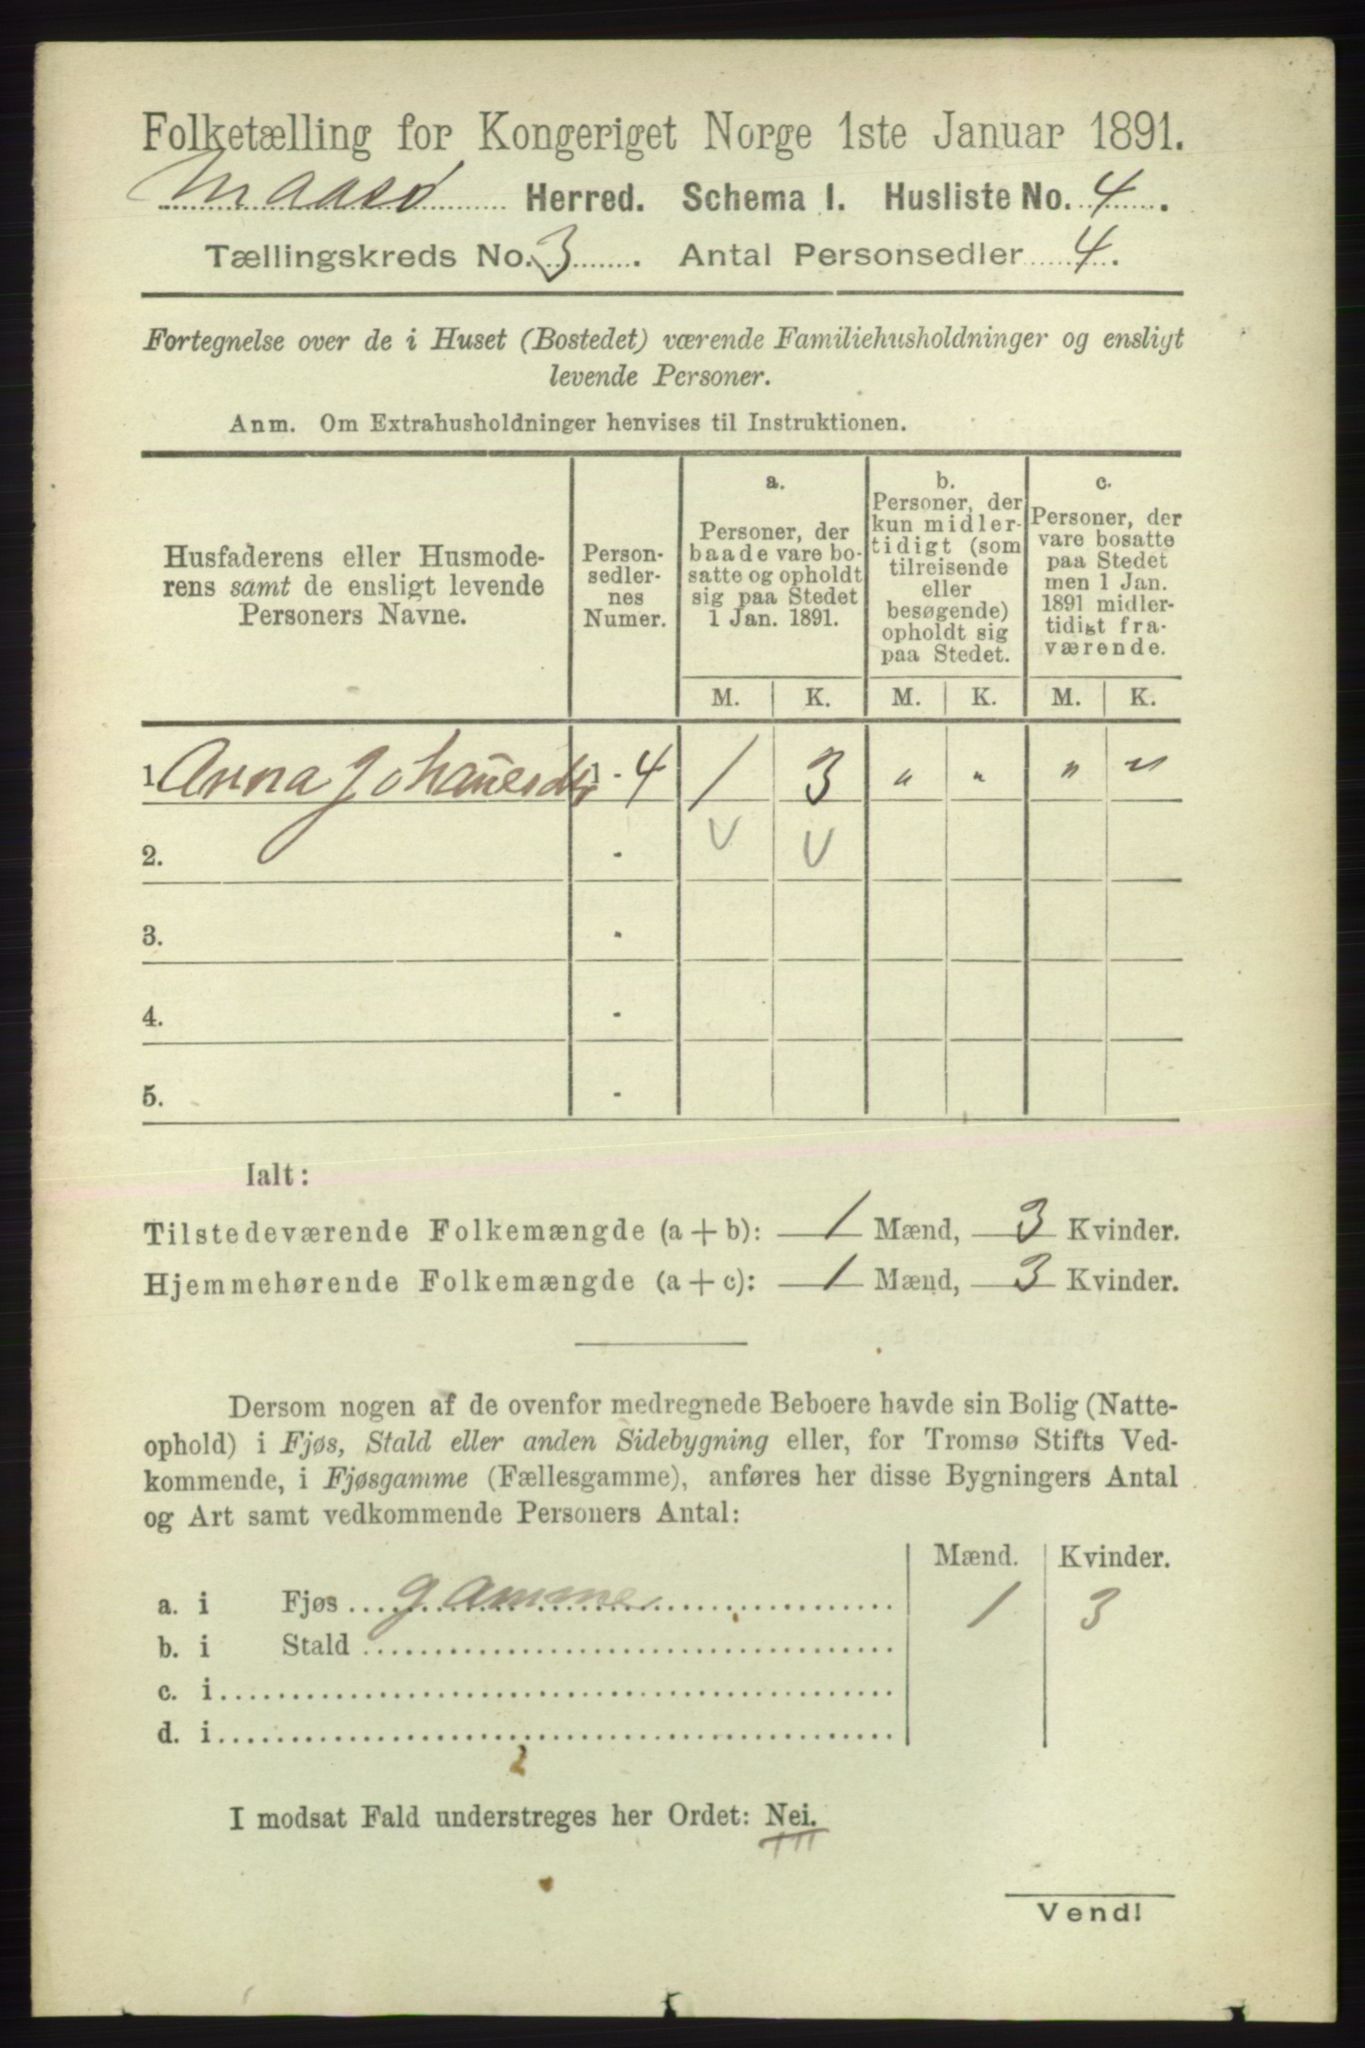 Folketælling for Kongeriget Norge 1ste Januar 1891.
Maasø Herred. Schema I. Husliste No. 4.
Tællingskreds No. 3. Antal Personsedler 4.
Fortegnelse over de i Huset (Bostedet) værende Familiehusholdninger og ensligt
levende Personer.
Anm. Om Extrahusholdninger henvises til Instruktionen.
Husfaderens eller Husmode-
rens samt de ensligt levende
Personers Navne.
Person-
sedler-
nes
Numer.
a.
Personer, der
baade vare bo-
satte og opholdt
sig paa Stedet
1 Jan. 1891.
b.
Personer, der
kun midler-
tidigt (som
tilreisende
eller
besøgende)
opholdt sig
paa Stedet.
c.
Personer, der
vare bosatte
paa Stedet
men 1 Jan.
1891 midler-
tidigt fra-
værende.
M. K. M. K. M. K.
1. Anna Johannesdtr 1 - 4 1 3 " " " "
2. - V V
3. -
4. -
5. -
Ialt:
Tilstedeværende Folkemængde (a + b): 1 Mænd, 3 Kvinder.
Hjemmehørende Folkemængde (a + c): 1 Mænd, 3 Kvinder.
Dersom nogen af de ovenfor medregnede Beboere havde sin Bolig (Natte-
ophold) i Fjøs, Stald eller anden Sidebygning eller, for Tromsø Stifts Ved-
kommende, i Fjøsgamme (Fællesgamme), anføres her disse Bygningers Antal
og Art samt vedkommende Personers Antal:
Mænd. Kvinder.
a. i Fjøs gamme 1 3
b. i Stald
c. i
d. i
I modsat Fald understreges her Ordet: Nei.
Vend!